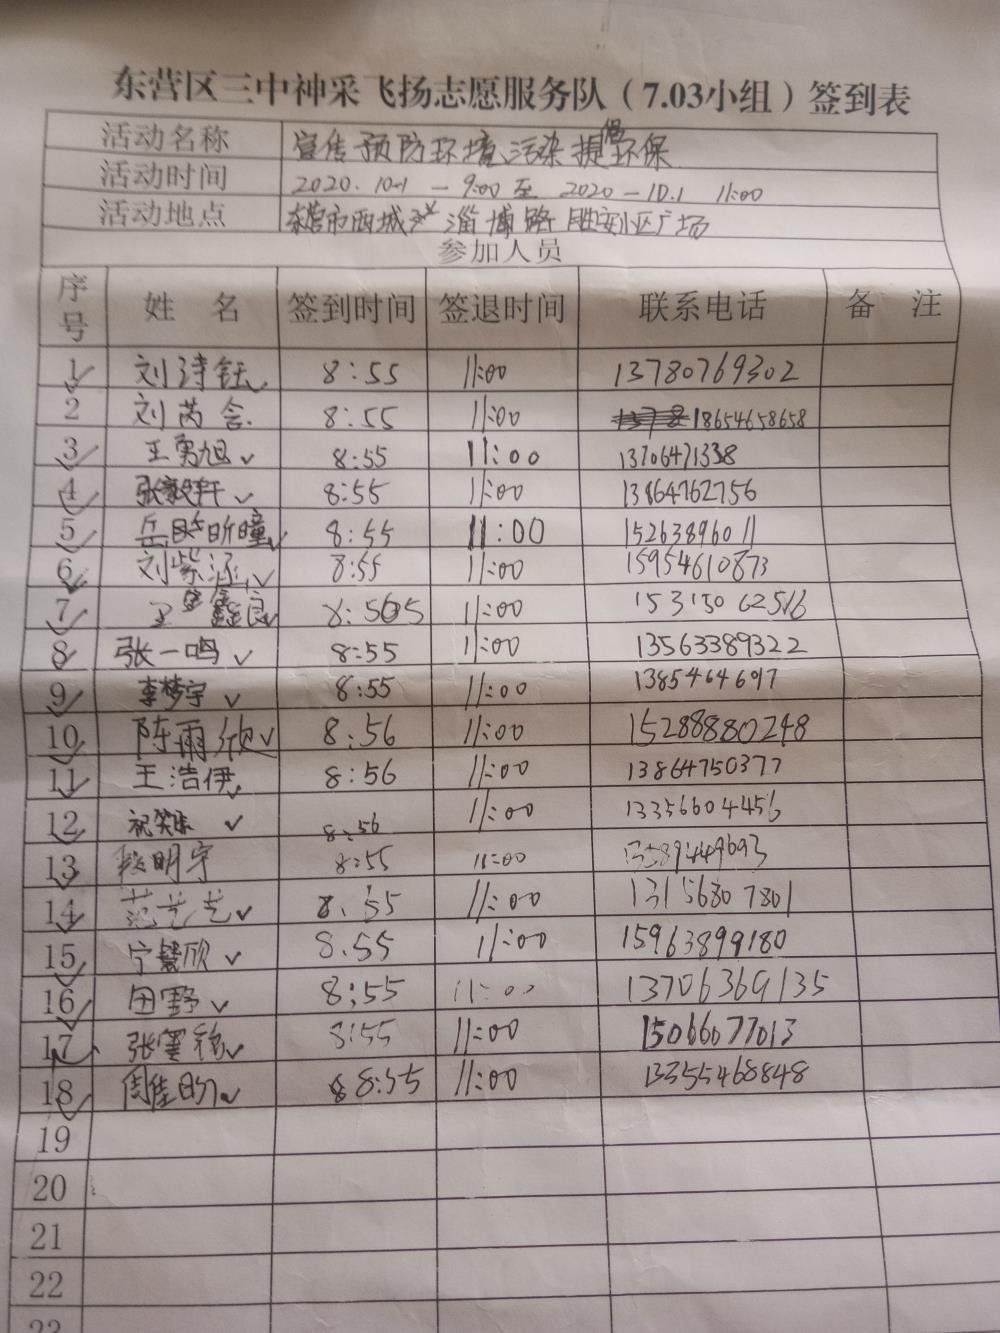 东营区三中神采飞扬志愿服务队（7.03小组）签到表
活动名称 宣传预防环境污染提倡环保
活动时间 2020.10.1 — 9:00 至 2020—10.1 11:00
活动地点 东营市西城 淄博路 胜安小区广场
参加人员
序号 姓 名 签到时间 签退时间 联系电话 备 注
1 刘诗钰 8:55 11:00 13780769302
2 刘芮含 8:55 11:00 18654658658
3 王勇旭 8:55 11:00 13706471338
4 张毅轩 8:55 11:00 13864762756
5 岳昕瞳 8:55 11:00 15263896011
6 刘紫涵 8:55 11:00 15954610873
7 王鑫良 8:55 11:00
8 张一鸣 8:55 11:00 13563389322
9 李梦宇 8:55 11:00 1385464697
10 陈雨欣 8:56 11:00 15288880248
11 王浩伊 8:56 11:00 13864750377
12 祝笑 8:56 11:00 13356604456
13 段明宇 8:55 11:00 13589449693
14 范艺艺 8:55 11:00 13156807801
15 宁慧欣 8.55 11:00 15963899180
16 田野 8:55 11:00 13706369135
17 张 8:55 11:00 15066077013
18 周佳昕 8:55 11:00 13355468848
19
20
21
22
23